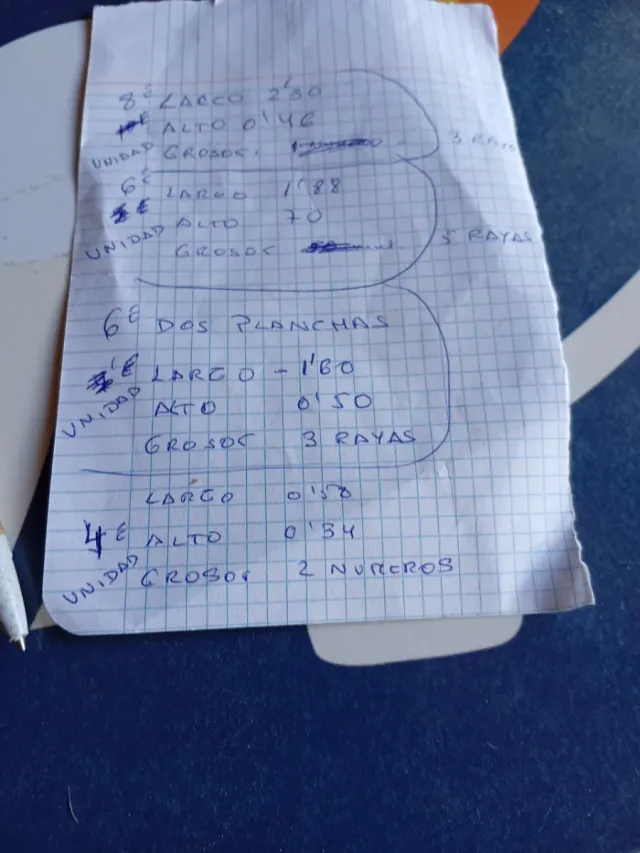 8€ LARGO 2'30
ALTO 0'46
UNIDAD GROSOR. 3 RAYAS
6€ LARGO 1'88
ALTO 70
UNIDAD GROSOR 5 RAYAS
6€ DOS PLANCHAS
LARGO - 1'60
UNIDAD ALTO 0'50
GROSOR 3 RAYAS
LARGO 0'58
4€ ALTO 0'34
UNIDAD GROSOR 2 NUMEROS